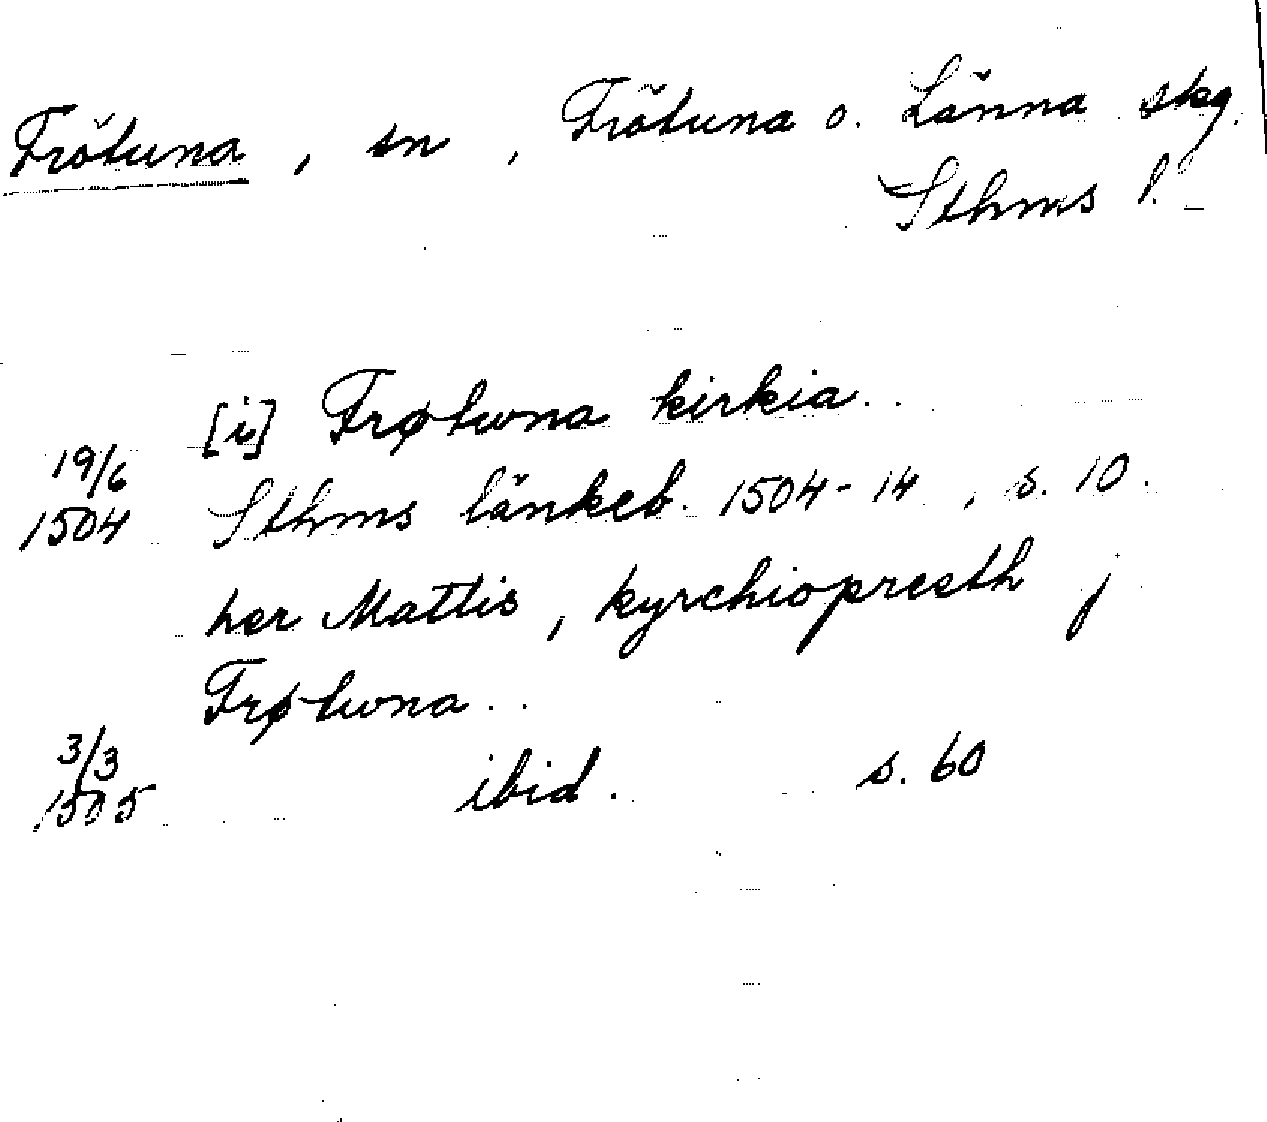 Frötuna, sn, Frötuna o. Länna skg.
Sthms l.
[i] Frøtwna kirkia..
19/6
1504 Sthms tänkeb. 1504-14, s. 10.
her Mattis, kyrchiopresth j
Frøtwna..
3/3
1505 ibid. s. 60